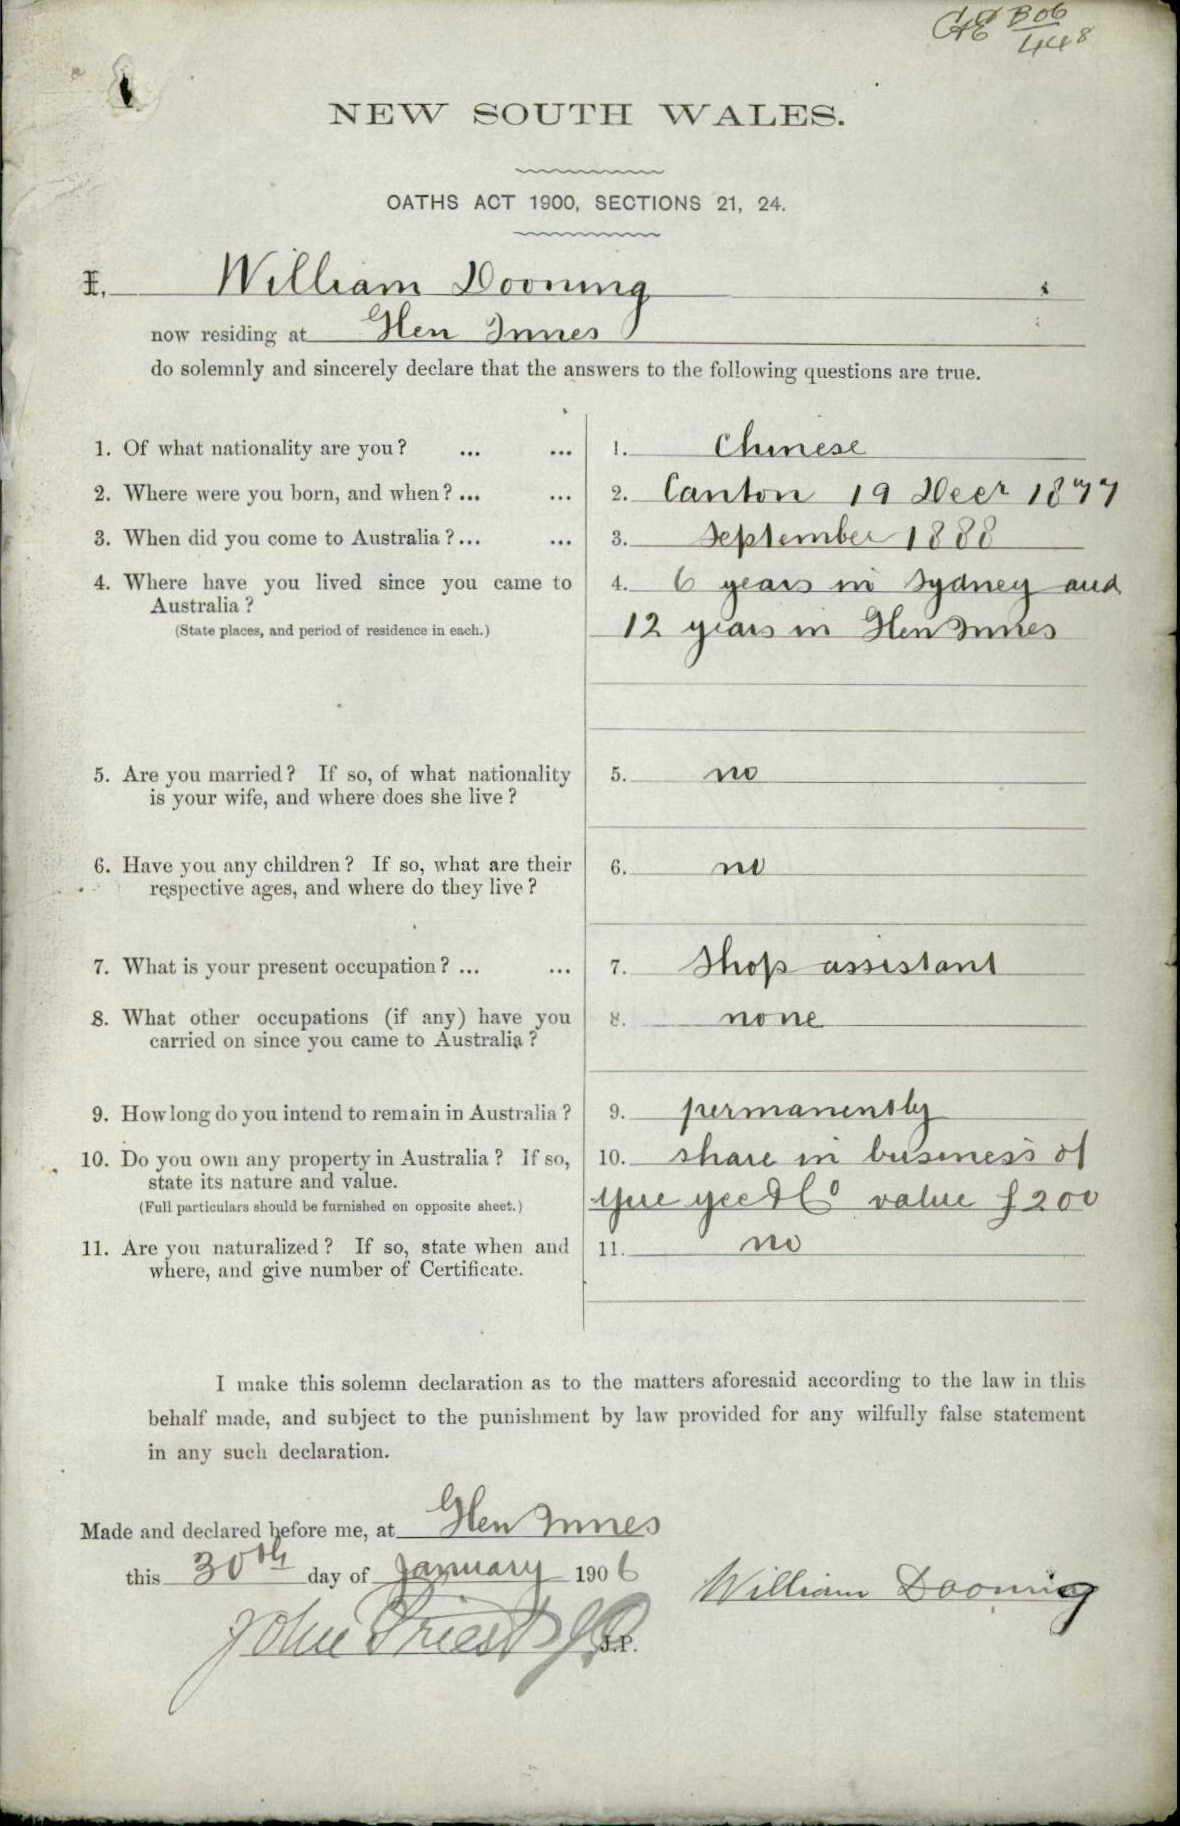 B06
448
NEW SOUTH WALES.
OATHS ACT 1900, SECTIONS 21, 24.
I, William Dooning
now residing at Glen Innes
do solemnly and sincerely declare that the answers to the following questions are true.
1. Of what nationality are you? ... ... 1. Chinese
2. Where were you born, and when? ... ... 2. Canton 19 Decr 1877
3. When did you come to Australia? ... ... 3. September 1888
4. Where have you lived since you came to 4. 6 years in Sydney and
Australia? 12 years in Glen Innes
(State places, and period of residence in each.)
5. Are you married? If so, of what nationality 5. no
is your wife, and where does she live?
6. Have you any children? If so, what are their 6. no
respective ages, and where do they live?
7. What is your present occupation? ... ... 7. Shop assistant
8. What other occupations (if any) have you 8. none
carried on since you came to Australia?
9. How long do you intend to remain in Australia? 9. permanently
10. Do you own any property in Australia? If so, 10. share in business of
state its nature and value. Yue Yee & Co value £200
(Full particulars should be furnished on opposite sheet.)
11. Are you naturalized? If so, state when and 11. no
where, and give number of Certificate.
I make this solemn declaration as to the matters aforesaid according to the law in this
behalf made, and subject to the punishment by law provided for any wilfully false statement
in any such declaration.
Made and declared before me, at Glen Innes
this 30th day of January 1906 William Dooning
John Priest JP J.P.